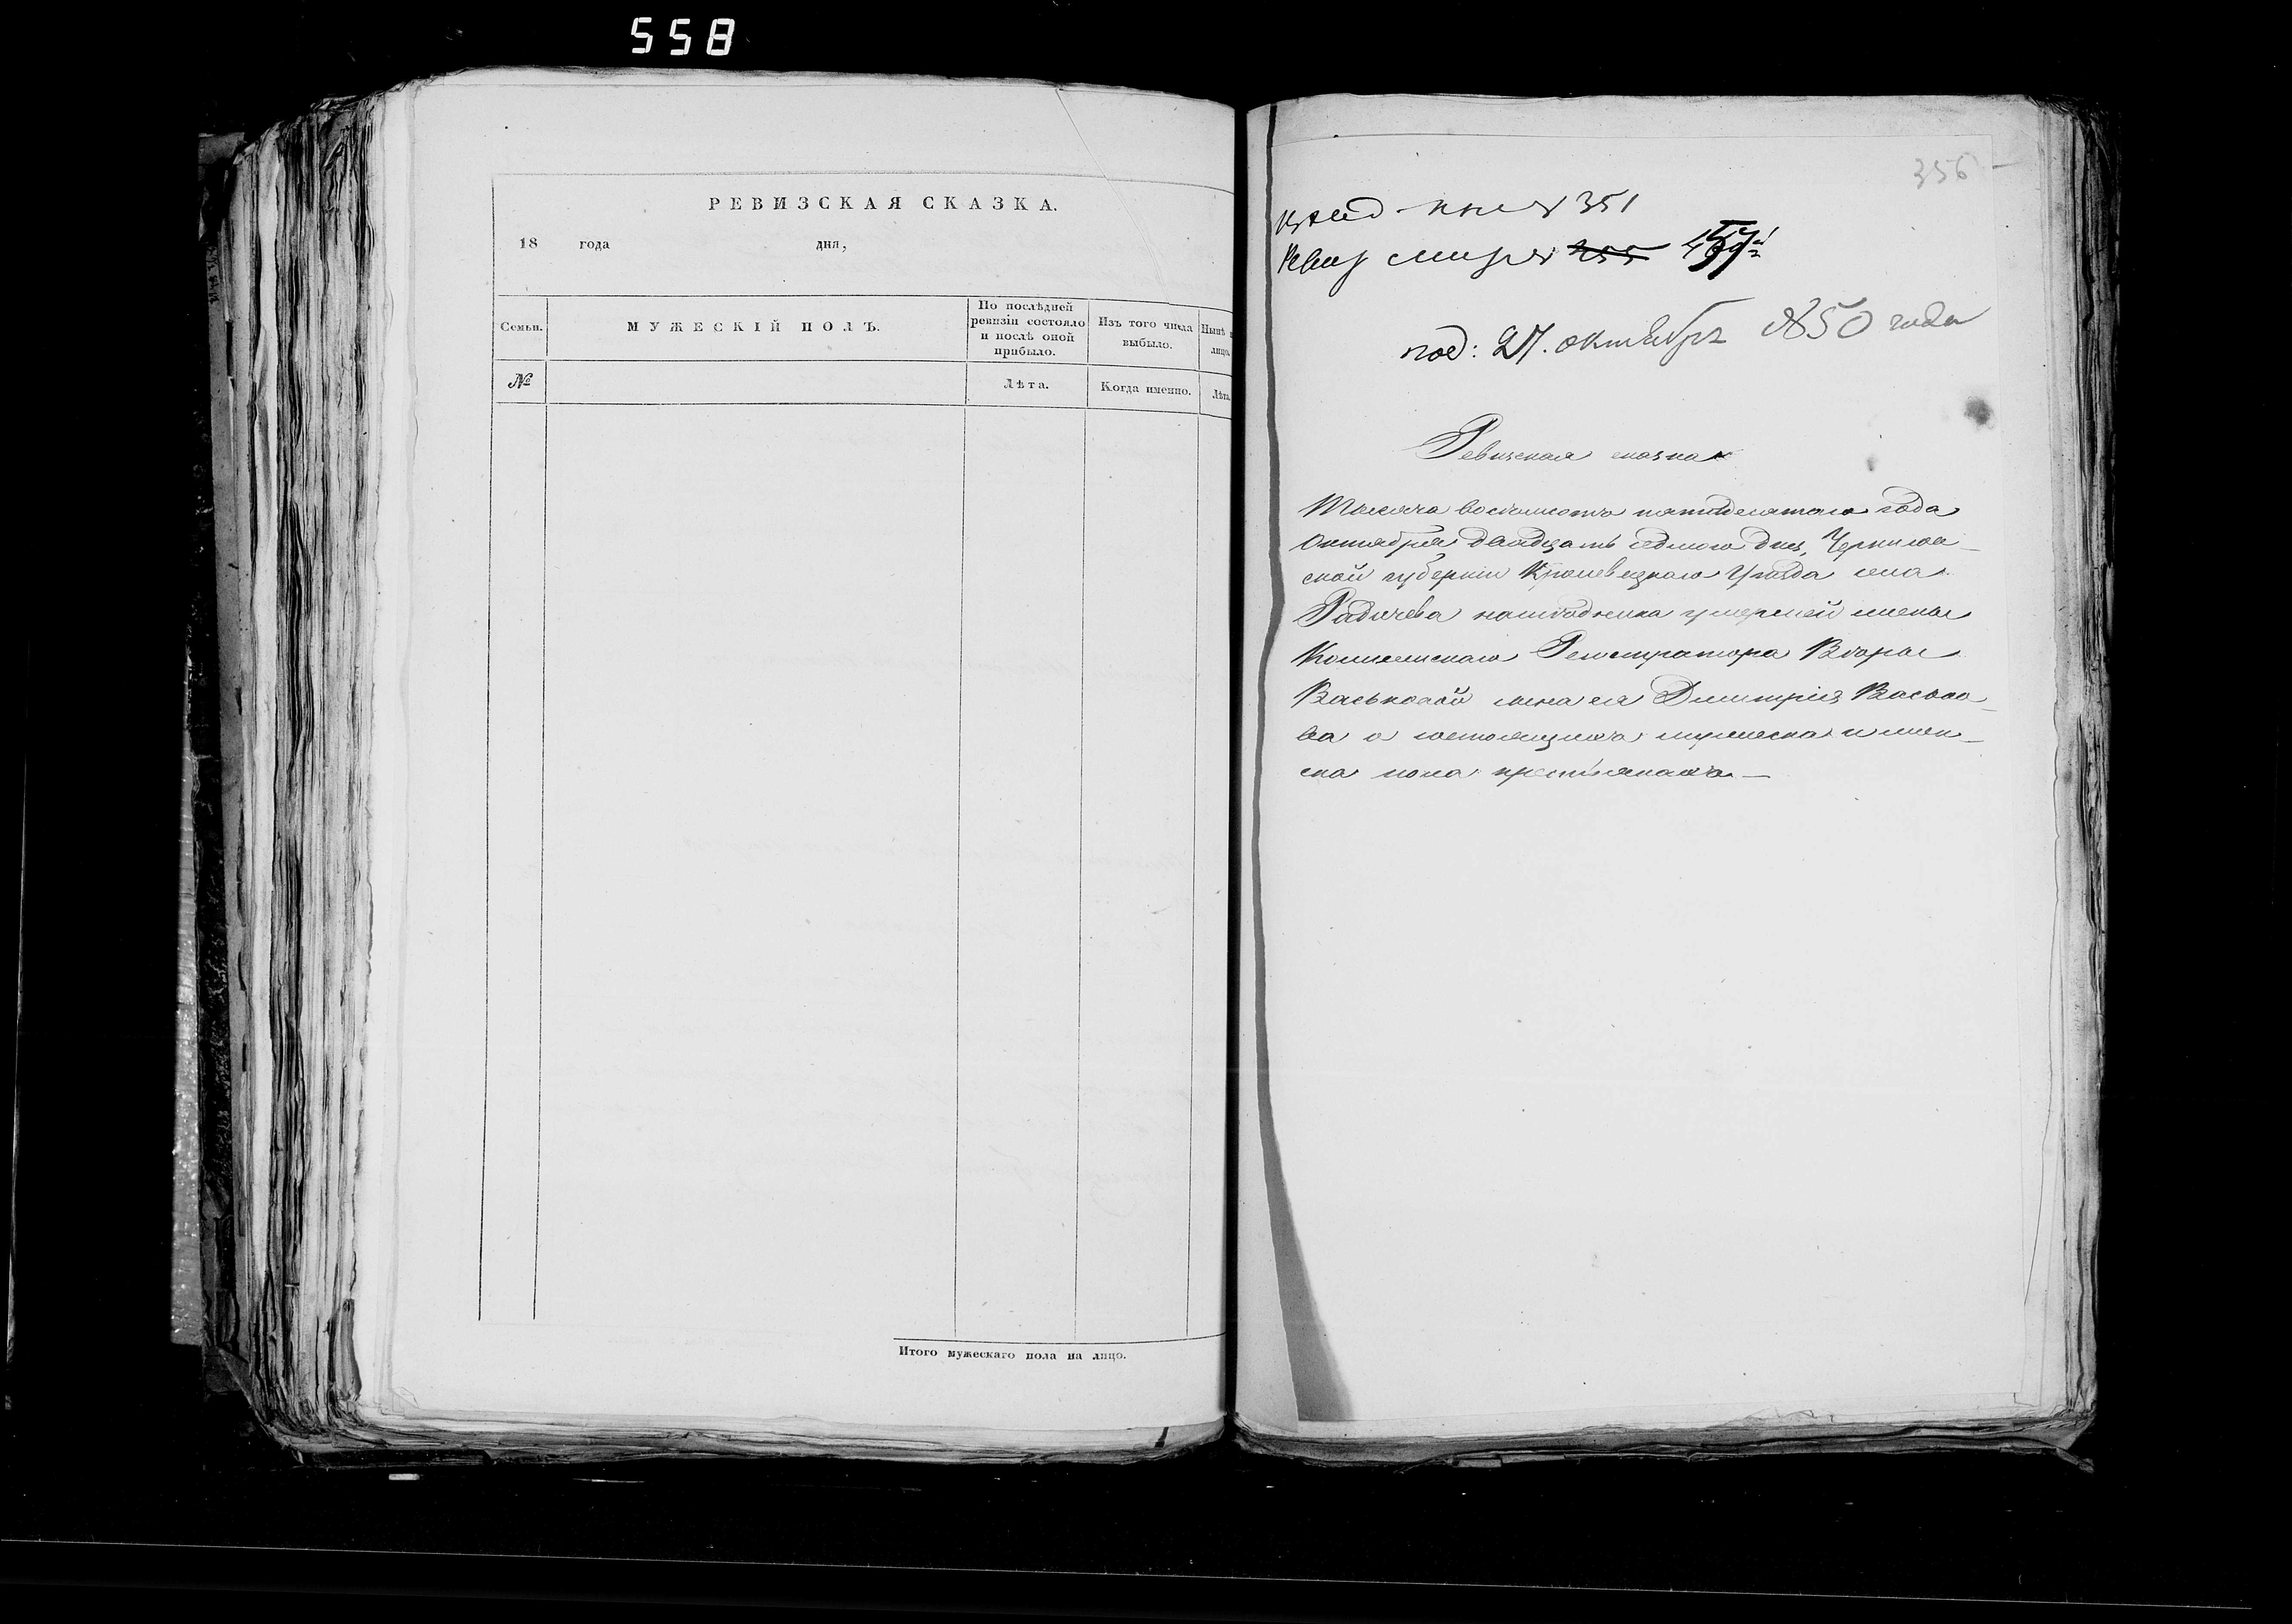 558
РЕВИЗСКАЯ СКАЗКА.
18 года дня,
Семьи.
МУЖЕСКІЙ ПОЛЪ.
По послѣдней
ревизіи состояло
и послѣ оной
прибыло.
Изъ того числа
выбыло.
Нынѣ
лицо.
№
Лѣта.
Когда именно.
Лѣта.
Итого мужескаго пола на лицо.
356
351
под: 27. октября 1850 года
Ревизская сказка
Тысяча восемьсотъ пятидесятого года
Октября двадцать седмого дня, Чернигов-
ской губерніи Кролевецкого Уезда села
Радичева наследника умершей жены
Коллежскаго Регистратора
Васьковой сына ея Дмитрія Васько-
ва о состоящихъ мужеска и жен-
ска пола крестьянахъ